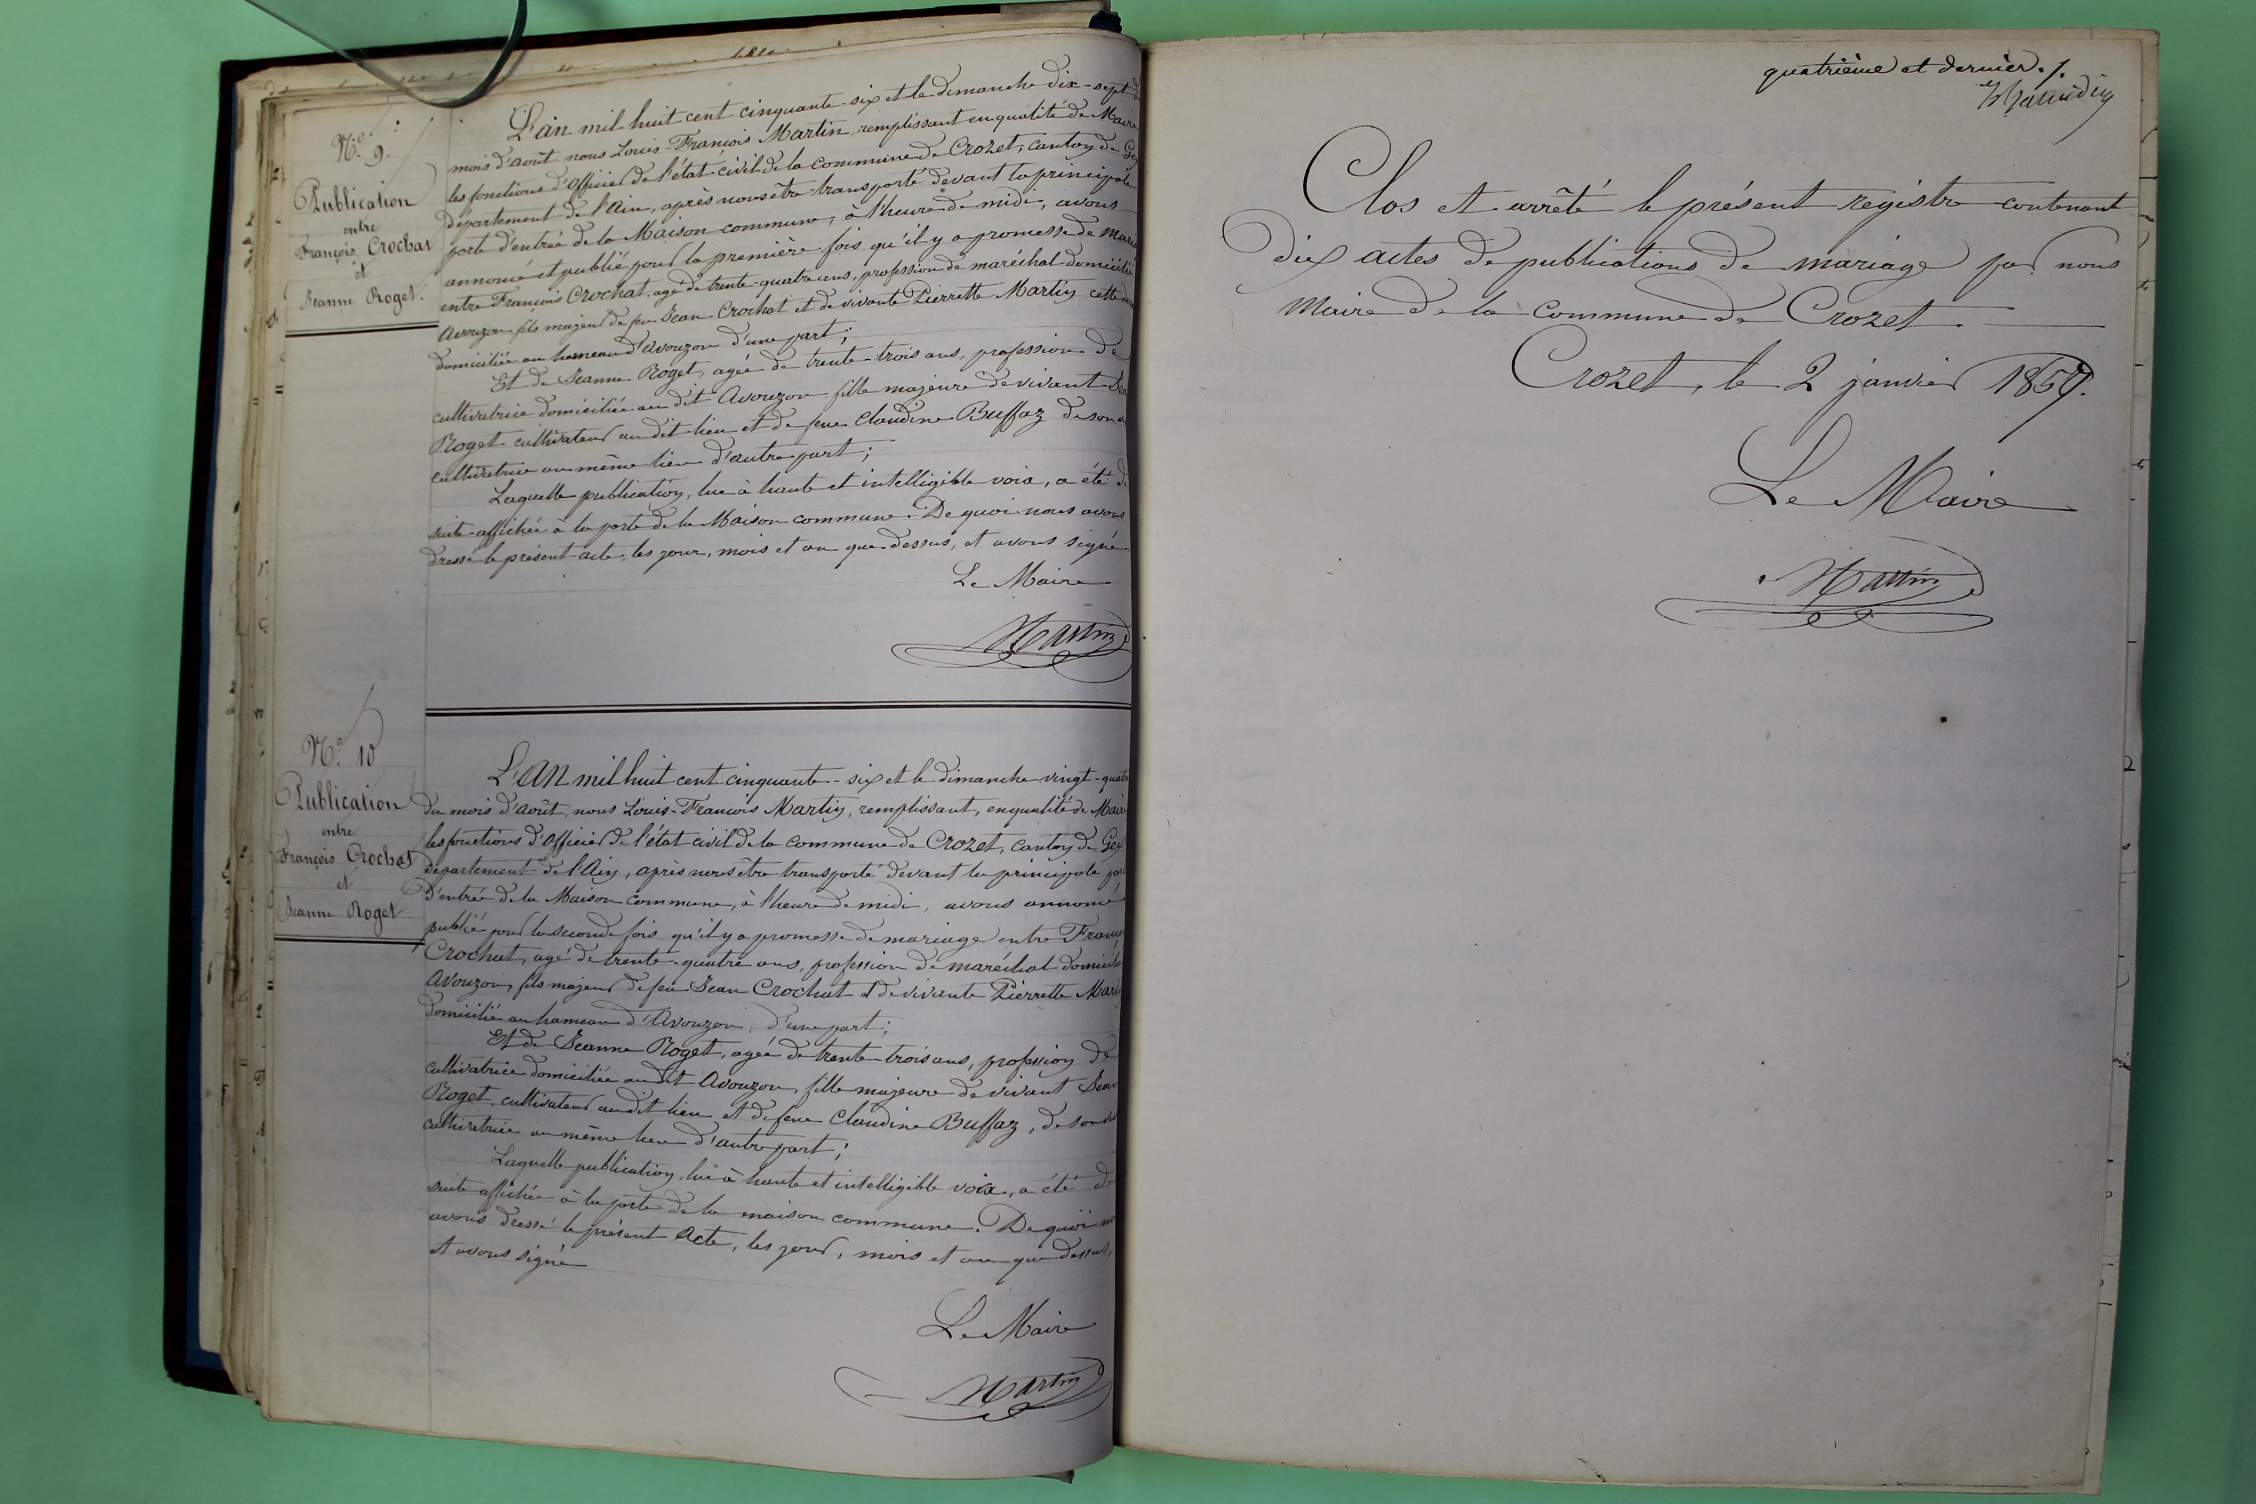 N.o 9.
Publication
entre
François Crochat
et
Jeanne Roget.
L'an mil huit cent cinquante-six et le dimanche dix-sept du
mois d'août nous Louis-François Martin, remplissant en qualité de Maire
les fonctions d'officier de l'état-civil de la commune de Crozet, canton de Gex
département de l'Ain, après nous être transporté devant la principale
porte d'entrée de la Maison commune, à l'heure de midi, avons
annoncé et publié pour la première fois qu'il y a promesse de mariage
entre François Crochat, agé de trente-quatre ans, profession de maréchal domicilié
Avouzon fils majeur de feu Jean Crochat et de vivante Pierrette Martin cette
domiciliée au hameau d'Avouzon d'une part;
Et de Jeanne Roget, agée de trente-trois ans, profession de
cultivatrice domiciliée au dit Avouzon fille majeure de vivant Jean
Roget cultivateur au dit lieu et de feue Claudine Buffaz de son
cultivatrice au même lieu d'autre part;
Laquelle publication, lue à haute et intelligible voix, a été de
suite affichée à la porte de la Maison commune. De quoi nous avons
dressé le présent acte, les jour, mois et an que dessus, et avons signé
Le Maire
Martin
N.o 10
Publication
entre
François Crochat
et
Jeanne Roget
L'an mil huit cent cinquante-six et le dimanche vingt-quatre
du mois d'août, nous Louis-François Martin, remplissant, en qualité de Maire
les fonctions d'officier de l'état civil de la commune de Crozet, canton de Gex
département de l'Ain, après nous être transporté devant la principale porte
d'entrée de la Maison commune, à l'heure de midi, avons annoncé
publié pour la seconde fois qu'il y a promesse de mariage entre François
Crochat, agé de trente-quatre ans, profession de maréchal domicilié
Avouzon, fils majeur de feu Jean Crochat et de vivante Pierrette Martin
domiciliée au hameau d'Avouzon, d'une part;
Et de Jeanne Roget, agée de trente-trois ans, profession de
cultivatrice domiciliée au dit Avouzon, fille majeure de vivant Jean
Roget, cultivateur au dit lieu et de feue Claudine Buffaz, de son
cultivatrice au même lieu d'autre part;
Laquelle publication, lue à haute et intelligible voix, a été de
suite affichée à la porte de la maison commune. De quoi nous
avons dressé le présent Acte, les jour, mois et an que dessus,
et avons signé
Le Maire
Martin
quatrième et dernier ./.
Clos et arrêté le présent registre contenant
Dix actes de publications de mariage par nous
Maire de la commune de Crozet.
Crozet, le 2 janvier 1857.
Le Maire
Martin